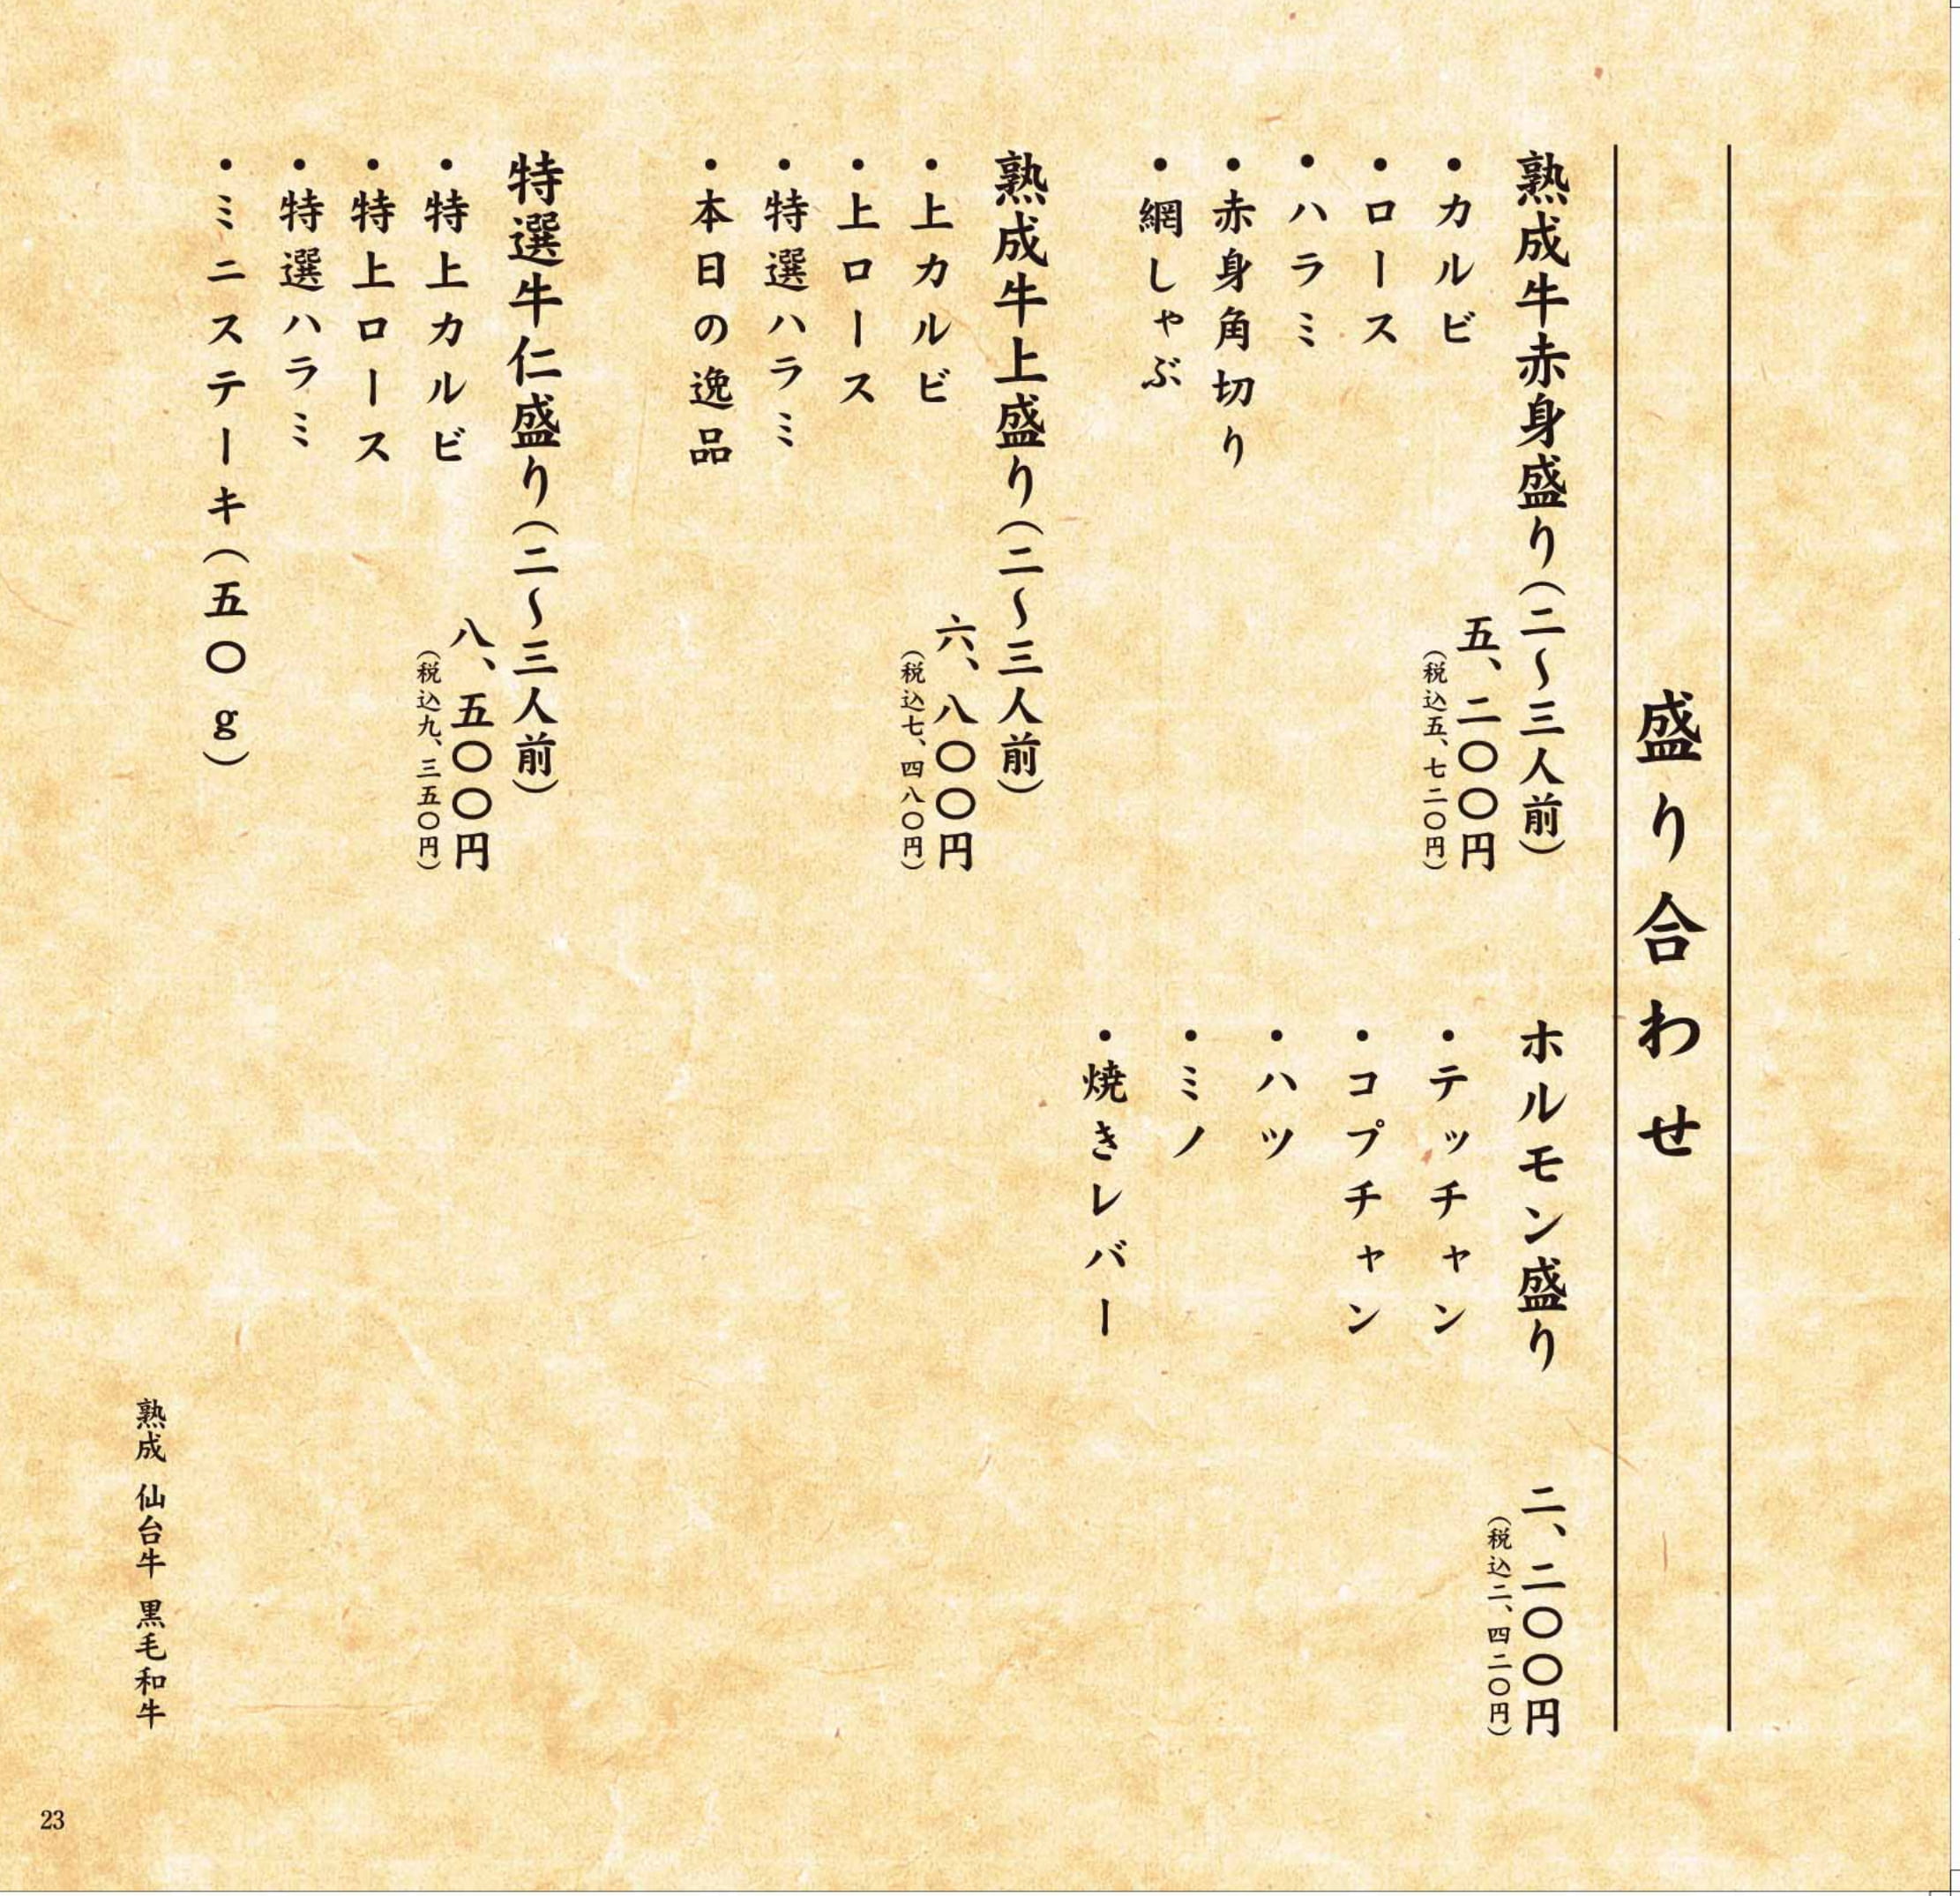 盛り合わせ
熟成牛赤身盛り（二〜三人前）
五、二〇〇円
（税込五、七二〇円）
・カルビ
・ロース
・ハラミ
・赤身角切り
・網しゃぶ
熟成牛上盛り（二〜三人前）
六、八〇〇円
（税込七、四八〇円）
・上カルビ
・上ロース
・特選ハラミ
・本日の逸品
特選牛仁盛り（二〜三人前）
八、五〇〇円
（税込九、三五〇円）
・特上カルビ
・特上ロース
・特選ハラミ
・ミニステーキ（五〇g）
ホルモン盛り
二、二〇〇円
（税込二、四二〇円）
・テッチャン
・コプチャン
・ハツ
・ミノ
・焼きレバー
熟成 仙台牛 黒毛和牛
23